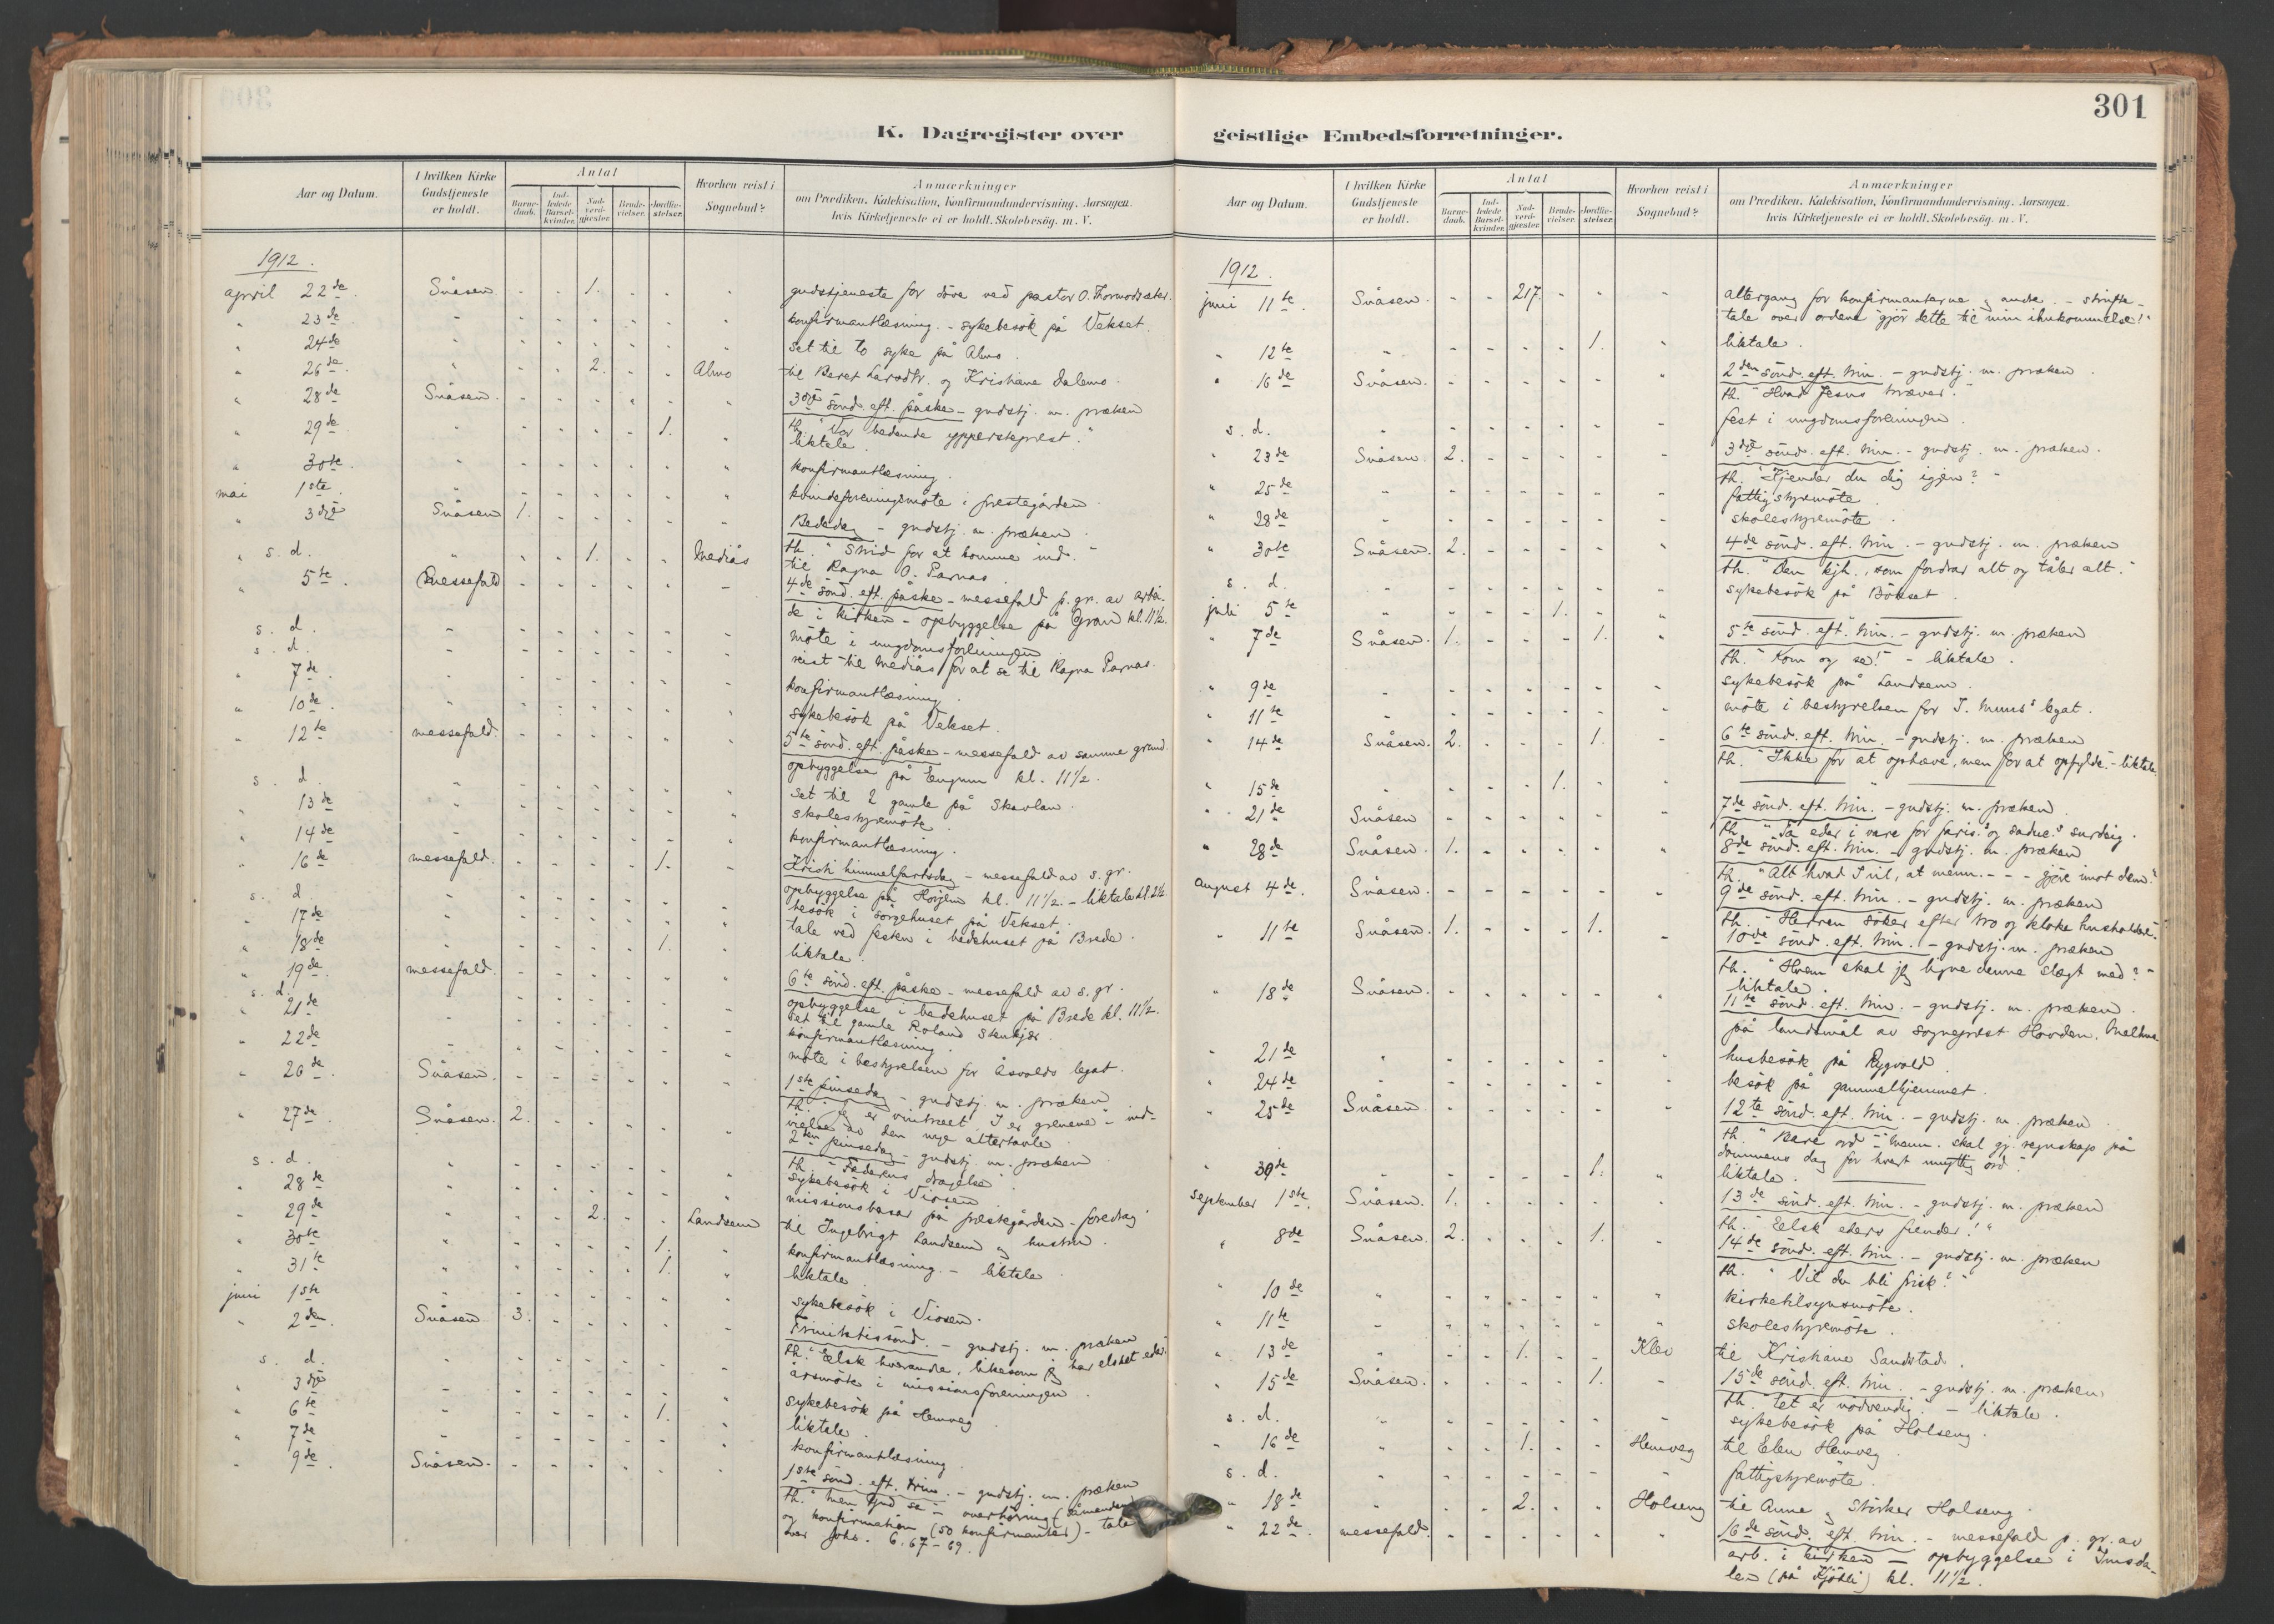 301
K. Dagregister over geistlige Embedsforretninger.
Aar og Datum. I hvilken Kirke Gudstjeneste er holdt. Antal Barnedaab. Indledede Barselkvinder. Nadverdgjæster. Brudevielser. Jordfæstelser. Hvorhen reist i Sognebud? Anmærkninger om Prædiken, Katekisation, Konfirmandundervisning. Aarsagen, hvis Kirketjeneste ei er holdt. Skolebesøg. m. V.
1912.
april 22de. Snåsen - - 1. - - - gudstjeneste for döve ved pastor O. Thormodsæter.
" 23de " - - - - - - konfirmantlæsning. - sykebesök på Vekset.
" 24de " - - - - - - set til to syke på Almo.
" 26de " - - 2. - - Almo til Beret Larsdtr. og Kristiane Dalemo.
" 28de Snåsen - - - - - - 3dje sönd. eft. påske - gudstj. m. præken
th. "Vor bedende yppersteprest."
" 29de " - - - - 1. " liktale.
" 30te. " - - - - - " konfirmantlæsning.
mai 1ste. " - - - - - " kvindeforeningsmöte i prestegården.
" 3dje Snåsen 1. - - - - - Bededag - gudstj. m. præken.
th. "Strid for at komme ind."
" s. d. " - - 1. - - Mediås til Ragna O. Parnas.
" 5te. messefald - - - - - - 4de sönd. eft. påske - messefald p. gr. av arbei-
de i kirken - opbyggelse på Gran kl. 11½.
s. d. " - - - - - - möte i ungdomsforeningen
s. d. " - - - - - - reist til Mediås for at se til Ragna Parnas.
" 7de. " - - - - - - konfirmantlæsning.
" 10de. " - - - - - - sykebesök på Vekset.
" 12te messefald. - - - - - - 5te sönd. eft. påske - messefald av samme grund.
opbyggelse på Engum kl. 11½.
s. d. " - - - - - - set til 2 gamle på Skavlan.
" 13de " - - - - - - skolestyremöte.
" 14de " - - - - - - konfirmantlæsning.
" 16de messefald. - - - - 1. - Kristi himmelfartsdag - messefald av s. gr.
opbyggelse på Horjem kl. 11½. - liktale kl. 2½
s. d. " - - - - - - besök i sörgehuset på Vekset.
" 17de " - - - - - - tale ved festen i bedehuset på Brede.
" 18de " - - - - 1. " liktale.
" 19de messefald. - - - - - - 6te sönd. eft. påske - messefald av s. gr.
opbyggelse i bedehuset på Brede kl. 11½.
s. d. " - - - - - - set til gamle Roland Stenkjær.
" 21de " - - - - - - konfirmantlæsning.
" 22de " - - - - - - möte i bestyrelsen for Åsvolds legat.
" 26de. Snåsen. - - - - - - 1ste pinsedag - gudstj. m. præken
th. "Jeg er vintræet, I er grenene" - ind-
vielse av den nye altertavle.
" 27de Snåsen. 2. - - - - - 2den pinsedag - gudstj. m. præken
th. "Faderens dragelse."
s. d. " - - - - - - sykebesök i Viosen
" 28de " - - - - - - missionsbasar på prestegården - foredrag
" 29de " - - 2. - - Landsem til Ingebrigt Landsem og hustru.
" 30te " - - - - 1. " konfirmantlæsning. - liktale
" 31te " - - - - 1. " liktale
juni 1ste " - - - - - - sykebesök i Viosen.
" 2den. Snåsen 3. - - - - - Trinitatissönd. - gudstj. m. præken
th. "Elsk hverandre, likesom jeg har elsket eder."
s. d. " - - - - - - årsmöte i missionsforeningen.
" 3dje " - - - - - - sykebesök på Hemveg.
" 6te " - - - - 1. " liktale.
" 7de " - - - - - - konfirmantlæsning.
" 9de. Snåsen. - - - - - - 1ste sönd. eft. trin. - gudstj. m. præken
th. "Men Gud sa" - overhöring
og konfirmation (50 konfirmanter) - tale
over Johs. 6. 67-69.
Aar og Datum. I hvilken Kirke Gudstjeneste er holdt. Antal Barnedaab. Indledede Barselkvinder. Nadverdgjæster. Brudevielser. Jordfæstelser. Hvorhen reist i Sognebud? Anmærkninger om Prædiken, Katekisation, Konfirmandundervisning. Aarsagen, hvis Kirketjeneste ei er holdt. Skolebesøg. m. V.
1912.
juni 11te. Snåsen. - - 217. - - - altergang for konfirmanterne og andre. - skrifte-
tale over ordene "gjör dette til min ihukommelse!"
" 12te " - - - - 1. " liktale.
" 16de Snåsen. - - - - - " 2den sönd. eft. trin. - gudstj. m. præken.
th. "Hvad Jesus kræver."
s. d. " - - - - - - fest i ungdomsforeningen.
" 23de Snåsen. 2. - - - - - 3dje sönd. eft. trin. - gudstj. m. præken.
th. "Kjender du dig igjen?"
" 25de " - - - - - - fattigstyremöte
" 28de " - - - - - - skolestyremöte.
" 30te Snåsen. 2. - - - - " 4de sönd. eft. trin. - gudstj. m. præken
th. "Den kjh., som fordrar alt og tåler alt."
s. d. " - - - - - - sykebesök på Bönset.
juli 5te " - - - 1. - "
" 7de Snåsen. 1. - - - 1. " 5te sönd. eft. trin. - gudstj. m. præken
th. "Kom og se!" - liktale.
" 9de " - - - - - - sykebesök på Landsem.
" 11te " - - - - - - möte i bestyrelsen for J. Muus' legat.
" 14de Snåsen. 2. - - - 1. - 6te sönd. eft. trin. - gudstj. m. præken
th. "Ikke for at ophæve, men for at opfylde." - liktale.
" 15de " - - - 1. - "
" 21de Snåsen - - - - - - 7de sönd. eft. trin. - gudstj. m. præken.
th. "Ta eder i vare for faris.' og saduc.' surdeig.
" 28de Snåsen. 1. - - - - " 8de sönd. eft. trin. - gudstj. m. præken
th. "Alt hvad I vil, at menn. - - - gjöre imot dem."
August 4de. Snåsen. - - - - - " 9de sönd. eft. trin. - gudstj. m. præken
th. "Herren söker efter tro og kloke husholdere."
" 11te Snåsen. 1. - - - 1. - 10de sönd. eft. trin. - gudstj. m. præken
th. "Hvem skal jeg ligne denne slægt med?"
liktale.
" 18de Snåsen. - - - - - " 11te sönd. eft. trin. - gudstj. m. præken.
på landsmål av sogneprest Hovden, Melhus
" 21de " - - - - - - husbesök på Rygvold.
" 24de " - - - - - - besök på gammelhjemmet.
" 25de Snåsen - - - - - " 12te sönd. eft. trin. - gudstj. m. præken
th. "Bare ord" - menn. skal gj. regnskap på
dommens dag for hvert unyttig ord."
" 30de " - - - - 1. " liktale.
September 1ste. Snåsen. 1. - - - - " 13de sönd. eft. trin. - gudstj. m. præken
th. "Elsk eders fiender!"
" 8de Snåsen. 2. - - - 1. - 14de sönd. eft. trin. - gudstj. m. præken
th. "Vil du bli frisk?"
" 10de " - - - - - " kirketilsynsmöte.
" 11te " - - - - - " skolestyremöte.
" 13de " - - 1. - - Klev til Kristiane Sandstad.
" 15de Snåsen. - - - - 1. - 15de sönd. eft. trin. - gudstj. m. præken
th. "Eet er nödvendig." - liktale.
s. d. " - - - - - - sykebesök på Holseng.
" 16de " - - 1. - - Hemveg til Elen Hemveg.
s. d. " - - - - - - fattigstyremöte.
" 18de " - - 2. - - Holseng til Anne og Störker Holseng.
" 22de. messefald. - - - - - " 16de sönd. eft. trin. - messefald p. gr. av
arb. i kirken - opbyggelse i Imsda-
len (på Kjölli) kl. 11½.